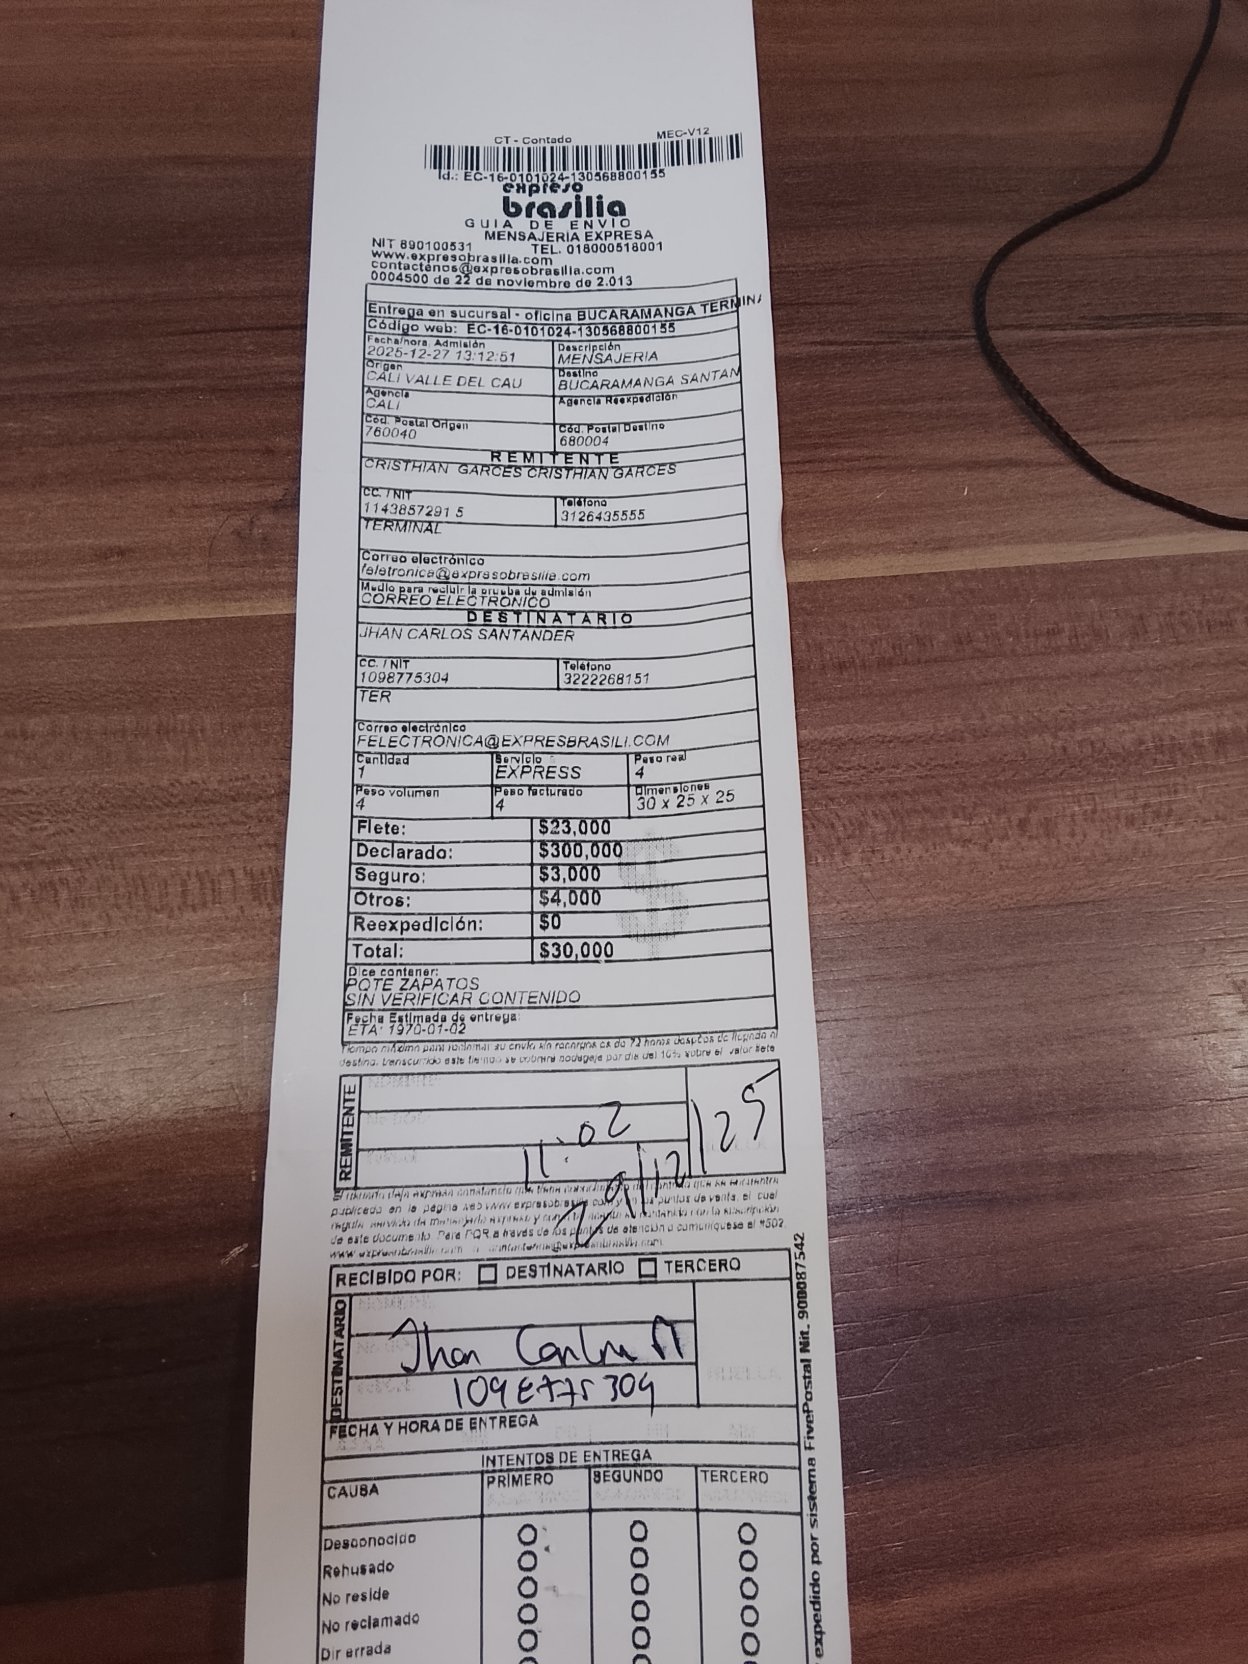 CT - Contado MEC-V12
Id.: EC-16-0101024-130568800155
expreso
brasilia
GUIA DE ENVIO
MENSAJERIA EXPRESA
NIT 890100531 TEL. 018000518001
www.expresobrasilia.com
contactenos@expresobrasilia.com
0004500 de 22 de noviembre de 2.013
Entrega en sucursal - oficina BUCARAMANGA TERMINA
Código web: EC-16-0101024-130568800155
Fecha/hora Admisión Descripción
2025-12-27 13:12:51 MENSAJERIA
Origen Destino
CALI VALLE DEL CAU BUCARAMANGA SANTAN
Agencia Agencia Reexpedición
CALI
Cód. Postal Origen Cód. Postal Destino
760040 680004
REMITENTE
CRISTHIAN GARCES CRISTHIAN GARCES
CC. / NIT Teléfono
1143857291 5 3126435555
TERMINAL
Correo electrónico
feletronica@expresobrasilia.com
Medio para recibir la prueba de admisión
CORREO ELECTRONICO
DESTINATARIO
JHAN CARLOS SANTANDER
CC. / NIT Teléfono
1098775304 3222268151
TER
Correo electrónico
FELECTRONICA@EXPRESBRASILI.COM
Cantidad Servicio Peso real
1 EXPRESS 4
Peso volumen Peso facturado Dimensiones
4 4 30 x 25 x 25
Flete: $23,000
Declarado: $300,000
Seguro: $3,000
Otros: $4,000
Reexpedición: $0
Total: $30,000
Dice contener:
POTE ZAPATOS
SIN VERIFICAR CONTENIDO
Fecha Estimada de entrega:
ETA: 1970-01-02
Tiempo máximo para reclamar su envío sin recargos es de 72 horas después de llegado al
destino, transcurrido este tiempo se cobrará bodegaje por día del 10% sobre el valor flete
REMITENTE
11:02
29/12/25
publicado en la página web www.expresobrasilia.com y en los puntos de venta, el cual
de este documento. Para PQR a través de los puntos de atención o comuníquese al #502,
RECIBIDO POR: DESTINATARIO TERCERO
DESTINATARIO
Jhan Carlos
1098775304
HUELLA
FECHA Y HORA DE ENTREGA
INTENTOS DE ENTREGA
CAUSA PRIMERO SEGUNDO TERCERO
Desconocido
Rehusado
No reside
No reclamado
Dir errada
expedido por sistema FivePostal Nit. 900087542